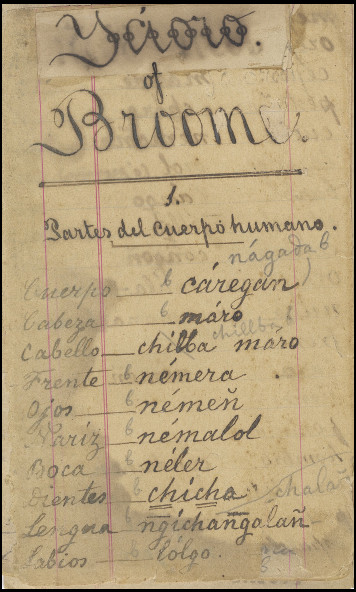 Yáoro.
of
Broome.
1.
Partes del Cuerpo humano.
nágada b
Cuerpo b cáregan
Cabeza b máro
chillba
Cabello chilba máro
Frente b némera
Ojos b némeñ
Nariz b némalol
Boca b néler
Dientes b chicha chalañ
Lengua ngichangalañ
Labios b lólgo.